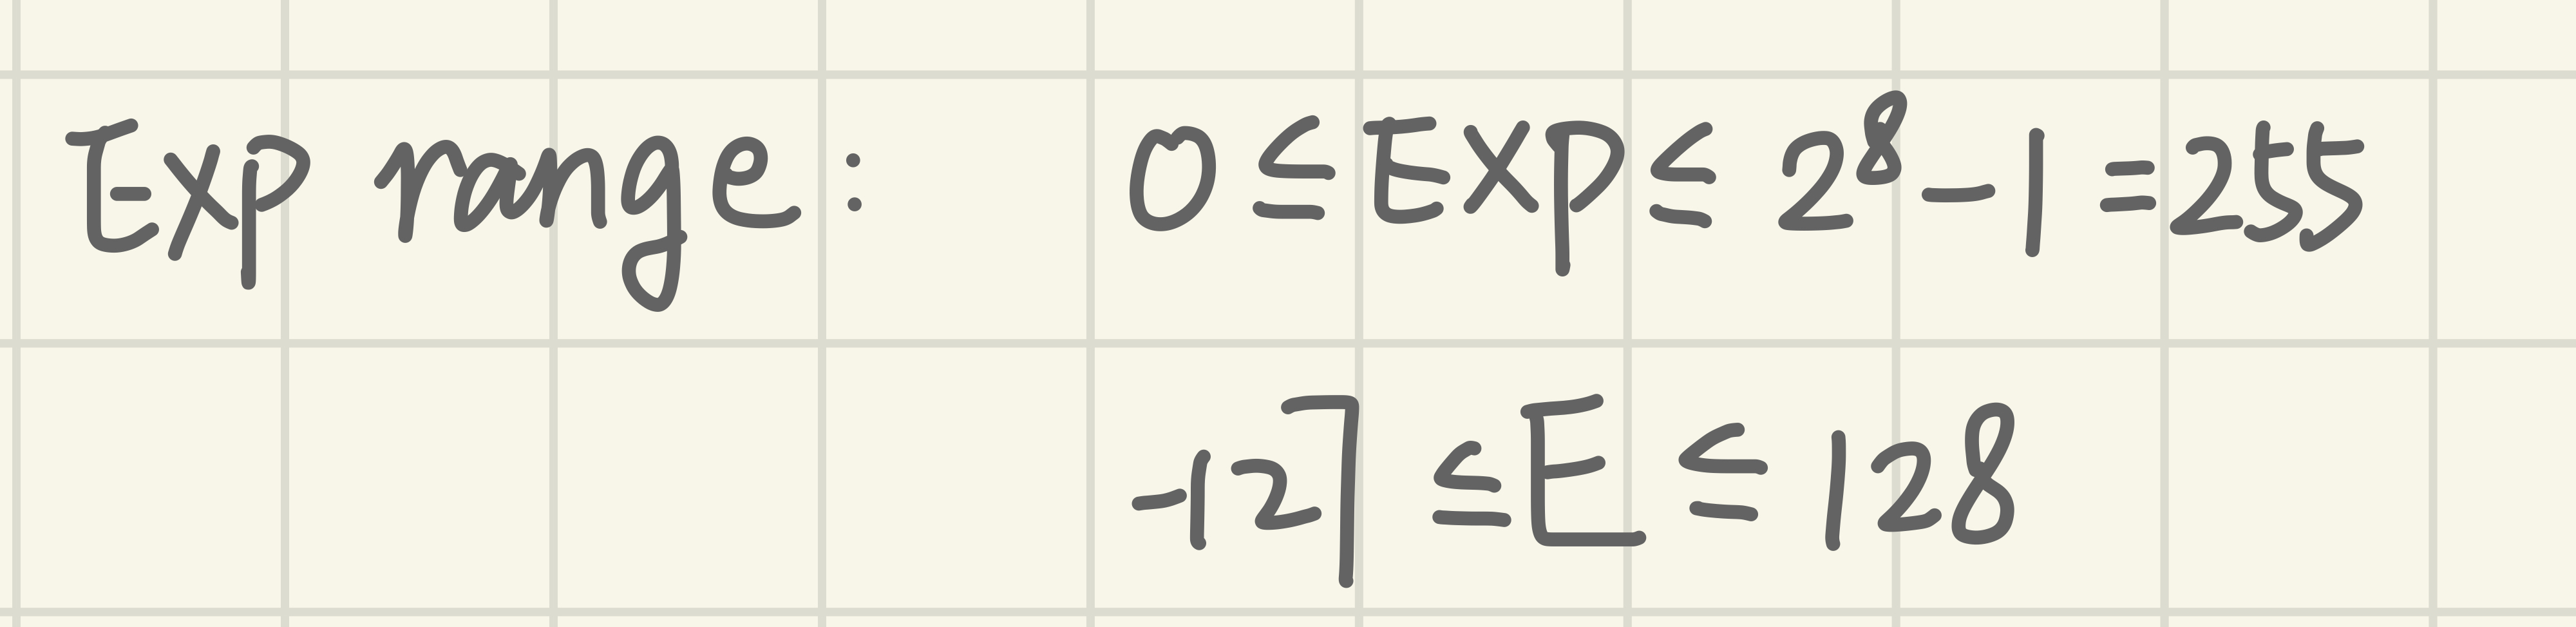 Exp range : 0 ≤ EXP ≤ 2⁸ - 1 = 255
-127 ≤ E ≤ 128